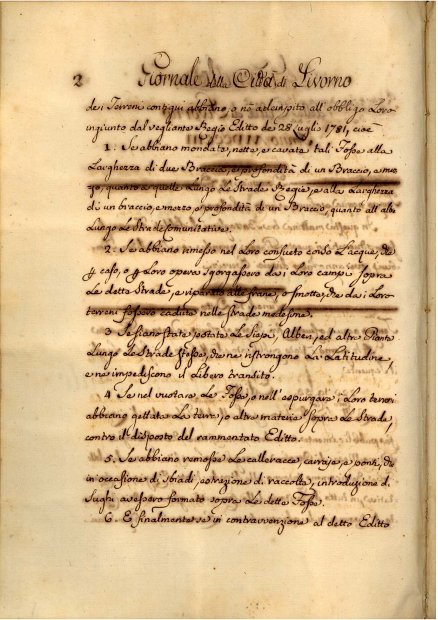 2 Giornale della Città di Livorno
dei Terreni contigui abbiano, o nò adempito all' obbligo Loro
ingiunto dal vegliante Regio Editto de 28 Luglio 1781, cioè
1. Se abbiano mondate, nette, e cavate tali Fosse alla
Larghezza di due Braccia, e profondità di un Braccio, e mez
zo, quanto a quelle Lungo Le Strade Regie, e alla Larghezza
di un braccio, e mezzo e profondità di un Braccio, quanto all' altre
Lungo Le Strade Comunitative.
2. Se abbiano rimesso nel Loro consueto corso L'acque, che
p caso, o p Loro opera sgorgassero dai Loro campi sopra
Le dette Strade, e riparato alle frane, o smotte, che dai Loro
terreni fossero cadute nelle strade medesime.
3 Se siano state potate Le Siepi, Alberi, ed altre Piante
Lungo Le Strade stesse, che ne ristringono La Latitudine
e ne impediscono il Libero transito.
4 Se nel vuotare Le Fosse, o nell' espurgare i Loro terreni
abbiano gettata La terra, o altra materia sopra Le Strade,
contro il disposto del rammentato Editto.
5. Se abbiano rimosse Le calleracce, carraje, e ponti, che
in occasione di estrazione di raccolta, introduzione di
Sughi avessero formato sopra Le dette Fosse.
6. E finalmente se in contravvenzione al detto Editto